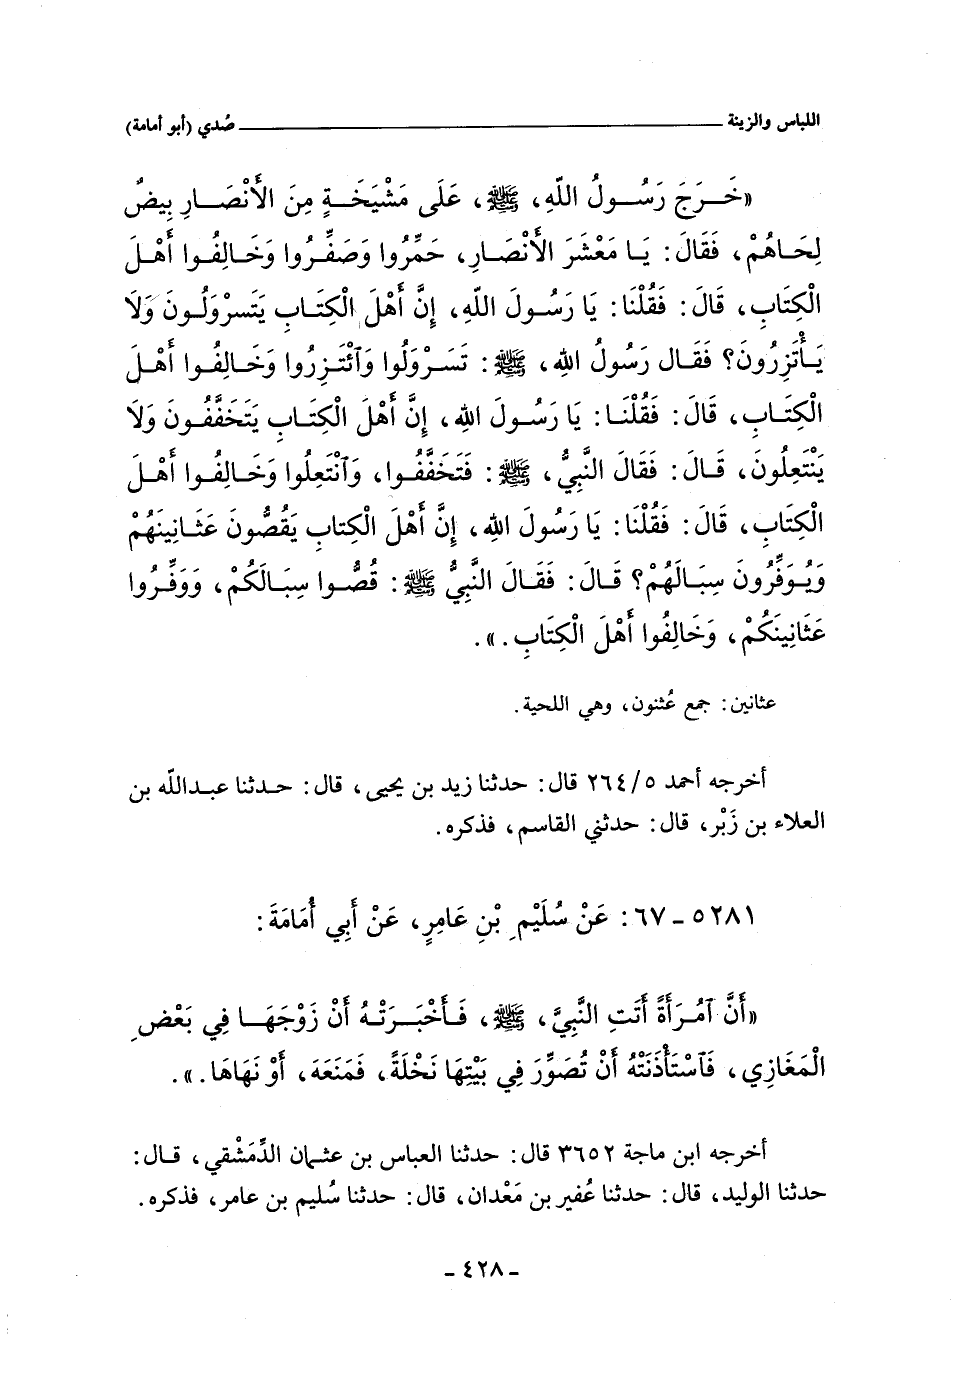 اللباس والزينة ــــــــــــ صُدي (أبو أمامة)
«خَـرَجَ رَسُـولُ اللّهِ، ﷺ، عَلَى مَشْيَخَـةٍ مِنَ الأَنْصَـارِ بِيضٌ
لِحَـاهُمْ، فَقَالَ: يَـا مَعْشَرَ الأَنْصَـارِ، حَمِّرُوا وَصَفِّرُوا وَخَـالِفُـوا أَهْـلَ
الْكِتَابِ، قَالَ: فَقُلْنَا: يَا رَسُـولَ اللّهِ، إِنَّ أَهْلَ الْكِتَـابِ يَتَسَرْوَلُـونَ وَلَا
يَـأْتَزِرُونَ؟ فَقَـال رَسُولُ اللهِ، ﷺ: تَسَـرْوَلُوا وَٱئْتَـزِرُوا وَخَـالِفُـوا أَهْـلَ
الْكِتَـابِ، قَالَ: فَقُلْنَـا: يَا رَسُـولَ اللهِ، إِنَّ أَهْلَ الْكِتَابِ يَتَخَفَّفُـونَ وَلَا
يَنْتَعِلُونَ، قَـالَ: فَقَالَ النَّبِيُّ، ﷺ: فَتَخَفَّفُـوا، وَٱنْتَعِلُوا وَخَـالِفُـوا أَهْـلَ
الْكِتَابِ، قَالَ: فَقُلْنَا: يَا رَسُولَ اللهِ، إِنَّ أَهْلَ الْكِتابِ يَقُصُّونَ عَثَـانِينَهُمْ
وَيُـوَفِّرُونَ سِبَـالَهُمْ؟ قَـالَ: فَقَـالَ النَّبِيُّ ﷺ: قُصُّـوا سِبَـالَكُمْ، وَوَفِّـرُوا
عَثَانِينَكُمْ، وَخَالِفُوا أَهْلَ الْكِتَابِ.».
عثانين: جمع عُثنون، وهي اللحية.
أخرجه أحمد ٥/٢٦٤ قال: حدثنا زيد بن يحيى، قال: حـدثنا عبـدالله بن
العلاء بن زَبْر، قال: حدثني القاسم، فذكره.
٥٢٨١ ـ ٦٧: عَنْ سُلَيْمِ بْنِ عَامِرٍ، عَنْ أَبِي أُمَامَةَ:
«أَنَّ ٱمْرَأَةً أَتَتِ النَّبِيَّ، ﷺ، فَـأَخْبَـرَتْـهُ أَنْ زَوْجَهَـا فِي بَعْضِ
الْمَغَازِي، فَٱسْتَأْذَنَتْهُ أَنْ تُصَوِّرَ فِي بَيْتِهَا نَخْلَةً، فَمَنَعَهَ، أَوْ نَهَاهَا.».
أخرجه ابن ماجة ٣٦٥٢ قال: حدثنا العباس بن عثمان الدِّمَشْقي، قـال:
حدثنا الوليد، قال: حدثنا عُفير بن مَعْدان، قال: حدثنا سُليم بن عامر، فذكره.
ـ ٤٢٨ ـ